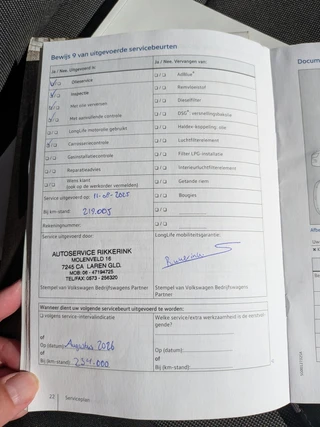 Bewijs 9 van uitgevoerde servicebeurten
Ja / Nee. Uitgevoerd is:
Olieservice
Inspectie
Met olie verversen
Met aanvullende controle
LongLife motorolie gebruikt
Carrosseriecontrole
Gasinstallatiecontrole
Reparatieadvies
Wens klant
(ook op de werkorder vermelden)
Service uitgevoerd op: 11-08-2025
Bij km-stand: 219.005
Rekeningnummer:
Service uitgevoerd door:
AUTOSERVICE RIKKERINK
MOLENVELD 16
7245 CA LAREN GLD.
MOB: 06 - 47194725
TEL/FAX: 0573 - 256320
Stempel van Volkswagen Bedrijfswagens
Partner
Ja / Nee. Vervangen van:
AdBlue®
Remvloeistof
Dieselfilter
DSG®-vertraagingsbakolie
Haldex-koppeling: olie
Luchtfilterelement
Filter LPG-installatie
Interieurluchtfilterelement
Getande riem
Bougies
LongLife mobiliteitsgarantie:
Rikkerink
Stempel van Volkswagen Bedrijfswagens
Partner
Wanneer dient uw volgende servicebeurt uitgevoerd te worden:
volgens service-intervalindicatie
of
Op (datum): Augustus 2026
of
Bij (km-stand): 234.000
Welke service/extra werkzaamheid is de eerstvol-
gende?
Op (datum):
of
Bij (km-stand):
22 Serviceplan
Docum